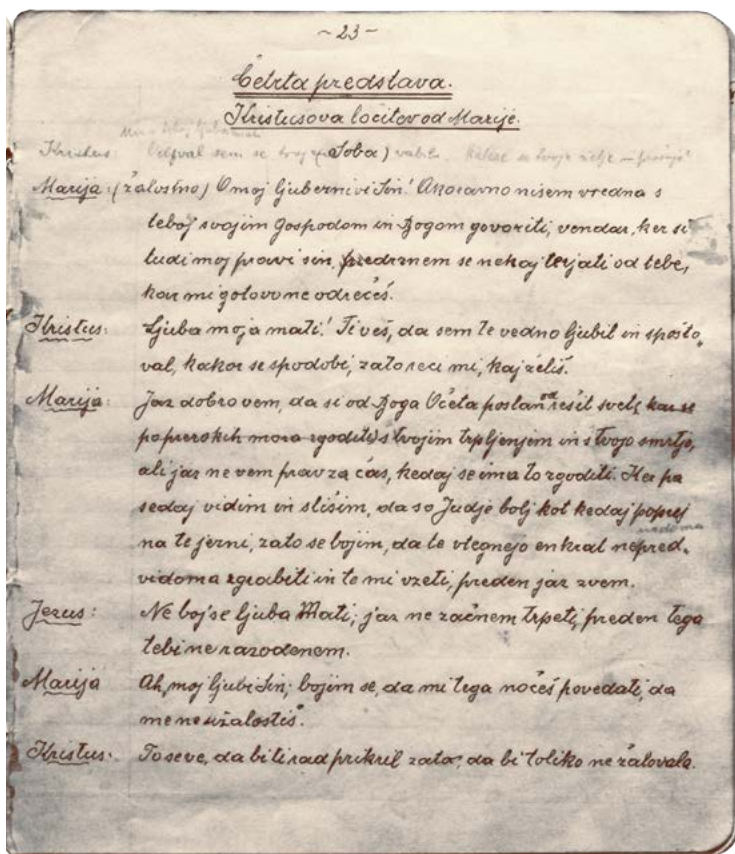 ~ 23 ~
Četrta predstava.
Kristusova ločitev od Marije.
Kristus: sem se tvoj (Soba) vabil.
Marija: (žalostno) O moj ljubeznivi Sin! Akoravno nisem vredna s
teboj svojim Gospodom in Bogom govoriti, vendar, ker si
tudi moj pravi sin, predrznem se nekaj terjati od tebe,
kar mi gotovo ne odrečeš.
Kristus: Ljuba moja mati! Ti veš, da sem te vedno ljubil in spošto-
val, kakor se spodobi, zato reci mi, kaj želiš.
Marija: Jaz dobro vem, da si od Boga Očeta poslan od rešit svet, kar se
po prerokih mora zgoditi s tvojim trpljenjem in s tvojo smrtjo,
ali jaz ne vem prav za čas, kedaj se ima to zgoditi. Ker pa
sedaj vidim in slišim, da so Judje bolj kot kedaj poprej
na te jezni, zato se bojim, da te utegnejo enkrat nepred-
vidoma
vidoma zgrabiti in te mi vzeti, preden jaz zvem.
Jezus: Ne boj se ljuba Mati; jaz ne začnem trpeti, preden tega
tebi ne razodenem.
Marija Ah, moj ljubi Sin; bojim se, da mi tega nočeš povedati, da
me ne užalostiš.
Kristus: To se ve, da bi ti rad prikril zato, da bi toliko ne žalovala.